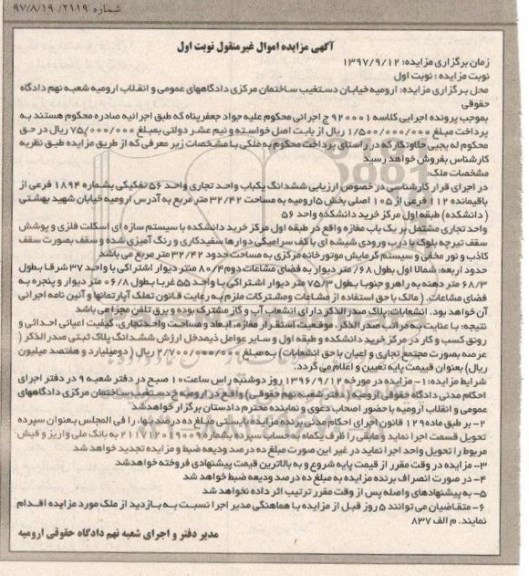 شماره ۲۱۱۹/ ۹۷/۸/۱۹
آگهی مزایده اموال غیرمنقول نوبت اول
زمان برگزاری مزایده: ۱۳۹۷/۹/۱۲
نوبت مزایده : نوبت اول
محل برگزاری مزایده: ارومیه خیابان دستغیب ساختمان مرکزی دادگاههای عمومی و انقلاب ارومیه شعبه نهم دادگاه
حقوقی
بموجب پرونده اجرایی کلاسه ۹۲۰۰۰۱ ج اجرائی محکوم علیه جواد جعفرپناه که طبق اجرائیه صادره محکوم هستند به
پرداخت مبلغ ۱/۵۰۰/۰۰۰/۰۰۰ ریال از بابت اصل خواسته و نیم عشر دولتی بمبلغ ۷۵/۰۰۰/۰۰۰ ریال در حق
محکوم له یحیی حلاوتکار که در راستای پرداخت محکوم به ملکی با مشخصات زیر معرفی که از طریق مزایده طبق نظریه
کارشناس بفروش خواهد رسید
مشخصات ملک:
در اجرای قرار کارشناسی در خصوص ارزیابی ششدانگ یکباب واحد تجاری واحد ۵۶ تفکیکی بشماره ۱۸۹۴ فرعی از
باقیمانده ۱۱۲ فرعی از ۱۰۵ اصلی بخش ۵ ارومیه به مساحت ۳۲/۴۲ متر مربع به آدرس ارومیه خیابان شهید بهشتی
( دانشکده) طبقه اول مرکز خرید دانشکده واحد ۵۶
واحد تجاری مشتمل بر یک باب مغازه واقع در طبقه اول مرکز خرید دانشکده با سیستم سازه ای اسکلت فلزی و پوشش
سقف تیرچه بلوک با درب ورودی شیشه ای با کف سرامیکی دیوارها سفیدکاری و رنگ آمیزی شده و سقف بصورت سقف
کاذب و نور مخفی و سیستم گرمایش موتورخانه مرکزی به مساحت حدود ۳۲/۴۲ متر مربع می باشد
حدود اربعه: شمالا اول بطول ۰/۶۸ متر دیوار به فضای مشاعات دوم ۴/۸۰ متر دیوار اشتراکی با واحد ۳۷ شرقا بطول
۳/۶۸ متر دهنه به راهرو جنوبا بطول ۳/۷۵ متر دیوار اشتراکی با واحد ۵۵ غربا بطول ۸/۰۶ متر دیوار و پنجره به
فضای مشاعات. ( مالک با حق استفاده از مشاعات و مشترکات ملزم به رعایت قانون تملک آپارتمانها و آئین نامه اجرائی
آن خواهد بود. انشعابات: پلاک صدرالذکر دارای انشعاب آب و گاز مشترک بوده و برق تلفن مجزا می باشد
نتیجه: با عنایت به مراتب صدر الذکر، موقعیت استقرار مغازه، ابعاد و مساحت واحد تجاری، کیفیت اعیانی احداثی و
رونق کسب و کار در مرکز خرید دانشکده و طبقه اول و سایر عوامل ذیمدخل ارزش ششدانگ پلاک ثبتی صدر الذکر (
عرصه بصورت مجتمع تجاری و اعیان با حق انشعابات) به مبلغ ۲/۷۰۰/۰۰۰/۰۰۰ ریال (دومیلیارد و هفتصد میلیون
ریال) بعنوان قیمت پایه تعیین و اعلام می گردد.
شرایط مزایده: ۱- مزایده در مورخه ۱۳۹۶/۹/۱۲ روز دوشنبه راس ساعت ۱۰ صبح در دفتر شعبه ۹ در دفتر اجرای
احکام مدنی دادگاه حقوقی ارومیه (دفتر شعبه نهم حقوقی) واقع در ارومیه خ دستغیب ساختمان مرکزی دادگاههای
عمومی و انقلاب ارومیه با حضور اصحاب دعوی و نماینده محترم دادستان برگزار خواهد شد
۲- بر طبق ماده ۱۲۹ قانون اجرای احکام مدنی برنده مزایده بایستی مبلغ ده درصد بها، را فی المجلس بعنوان سپرده
تحویل قسمت اجرا نماید و مابقی را ظرف یکماه به حساب سپرده بشماره به بانک ملی واریز و فیش
مربوط را تحویل واحد اجرا نماید در غیر این صورت مبلغ ده درصد ودیعه ضبط و مزایده تجدید خواهد شد
۳- مزایده در وقت مقرر از قیمت پایه شروع و به بالاترین قیمت پیشنهادی فروخته خواهد شد
۴- در صورت انصراف برنده مزایده به مبلغ ده درصد ودیعه ضبط خواهد شد
۵- به پیشنهادهای واصله پس از وقت مقرر ترتیب اثر داده نخواهد شد
۶- متقاضیان می توانند ۵ روز قبل از مزایده با هماهنگی مدیر اجرا نسبت به بازدید از ملک مورد مزایده اقدام
نمایند. م الف ۸۳۷
مدیر دفتر و اجرای شعبه نهم دادگاه حقوقی ارومیه